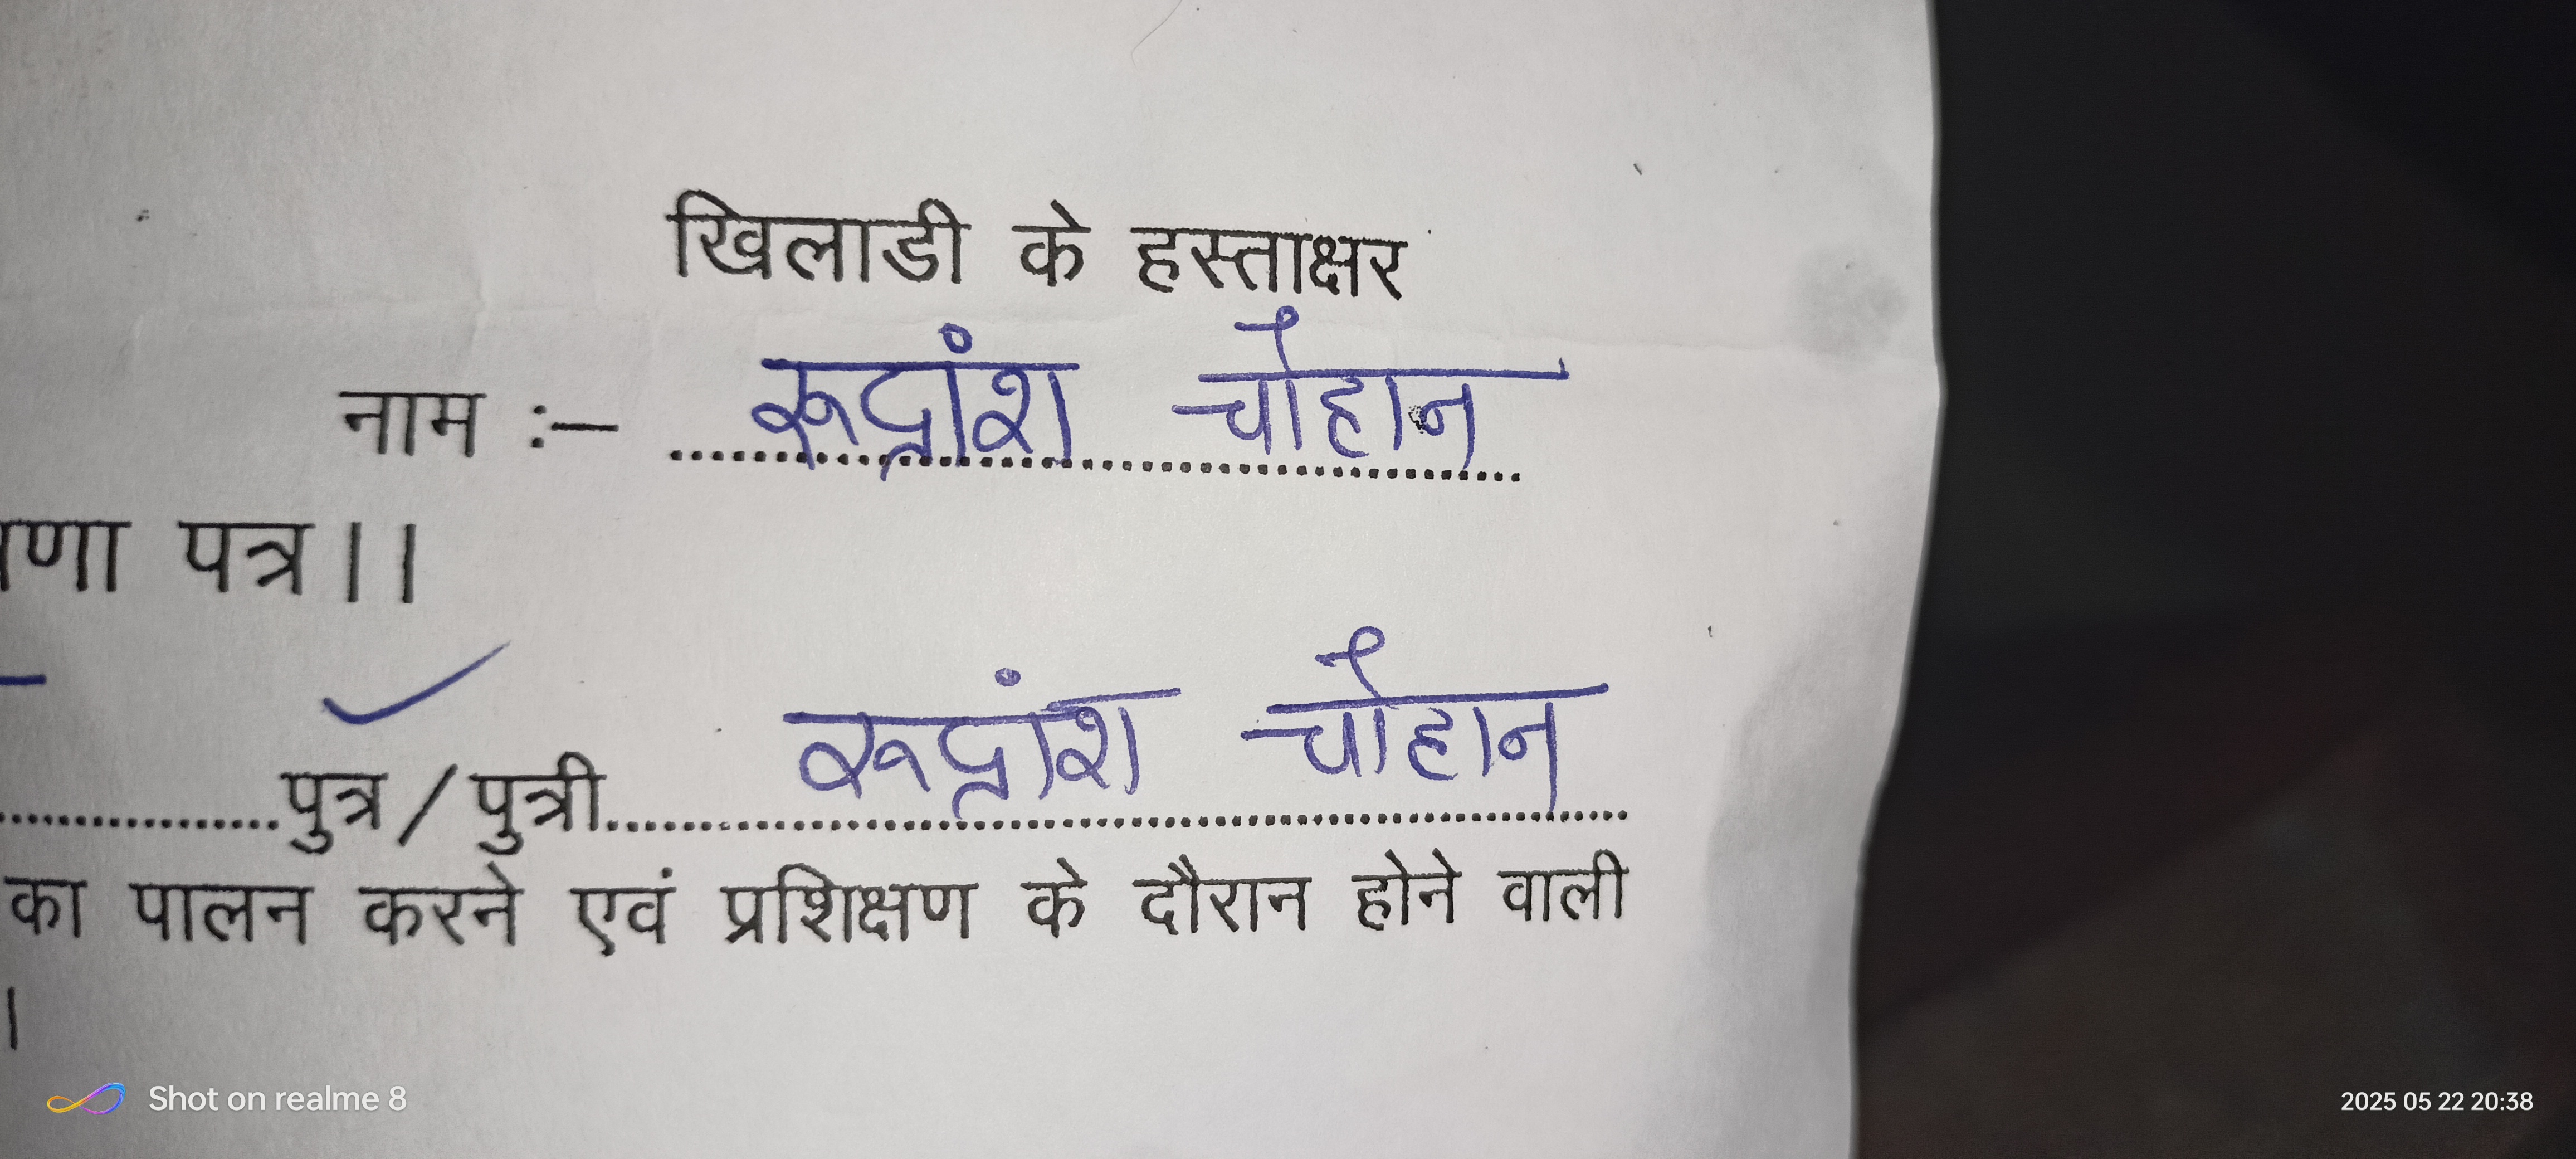 खिलाडी के हस्ताक्षर
नाम :– रूद्रांश चौहान
षणा पत्र।।
पुत्र/पुत्री रूद्रांश चौहान
का पालन करने एवं प्रशिक्षण के दौरान होने वाली
।
Shot on realme 8
2025 05 22 20:38